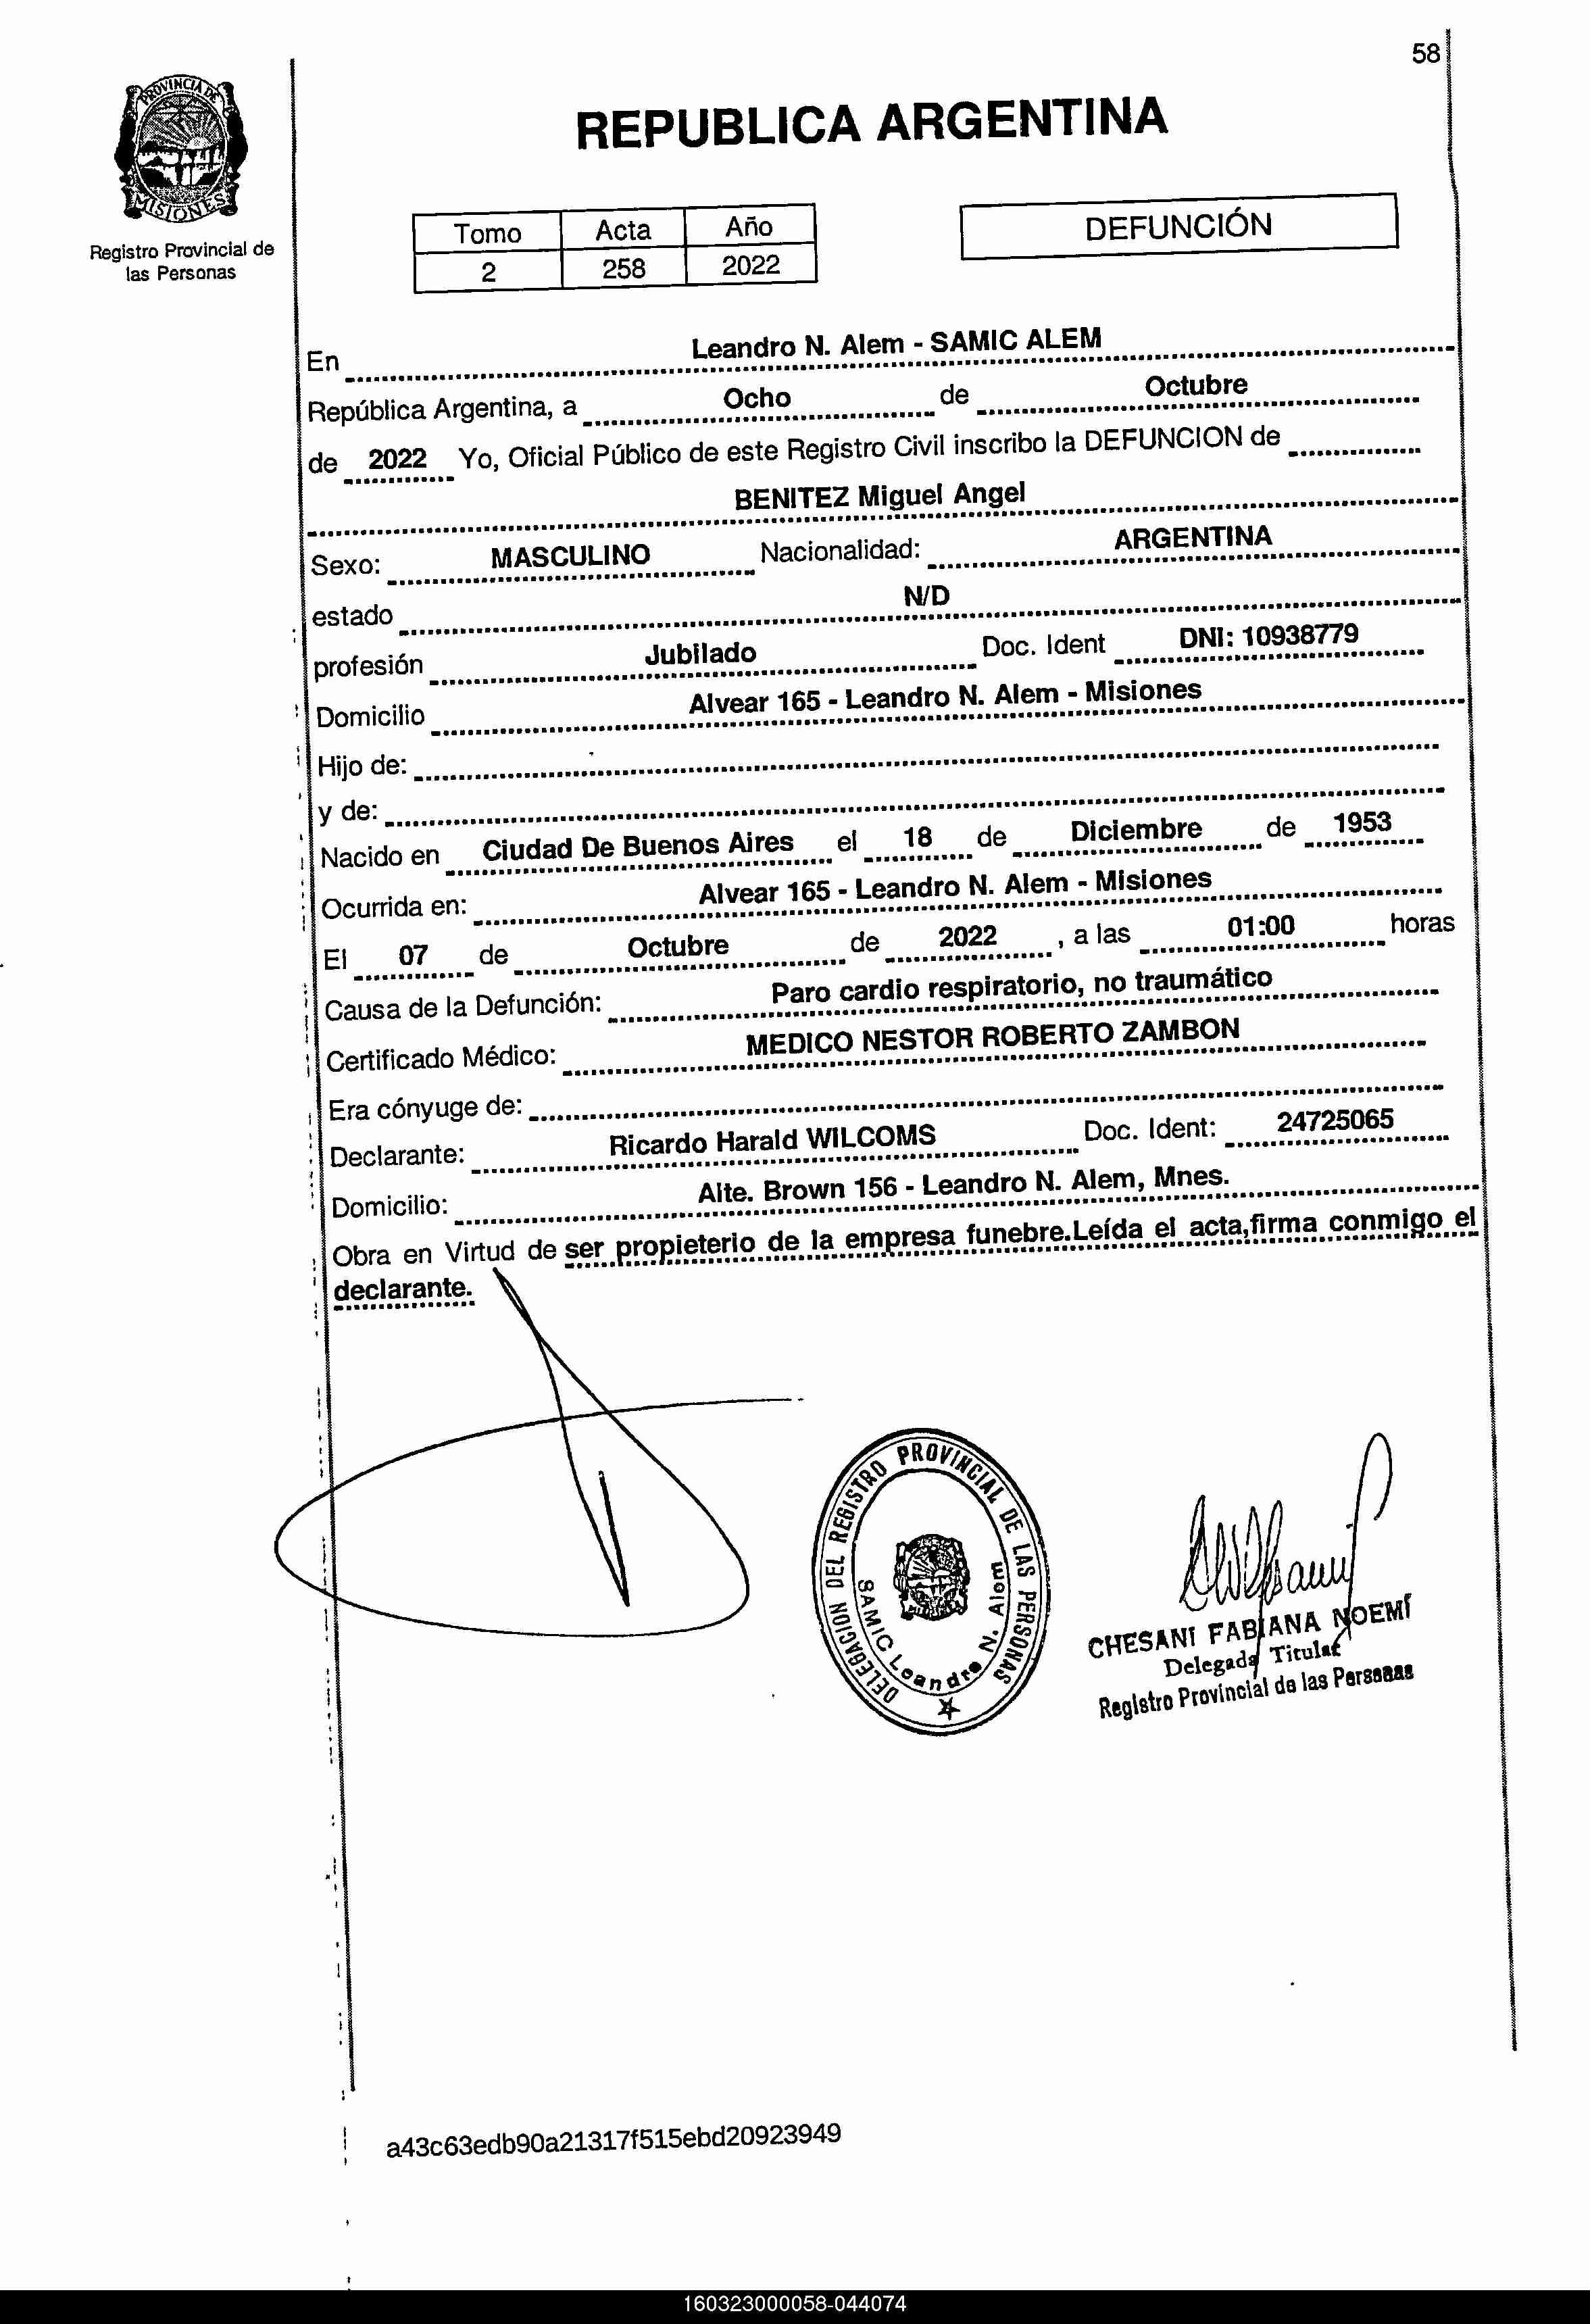 58
PROVINCIA DE
MISIONES
Registro Provincial de
las Personas
REPUBLICA ARGENTINA
Tomo Acta Año
2 258 2022
DEFUNCIÓN
En Leandro N. Alem - SAMIC ALEM
República Argentina, a Ocho de Octubre
de 2022 Yo, Oficial Público de este Registro Civil inscribo la DEFUNCION de
BENITEZ Miguel Angel
Sexo: MASCULINO Nacionalidad: ARGENTINA
estado N/D
profesión Jubilado Doc. Ident DNI: 10938779
Domicilio Alvear 165 - Leandro N. Alem - Misiones
Hijo de:
y de:
Nacido en Ciudad De Buenos Aires el 18 de Diciembre de 1953
Ocurrida en: Alvear 165 - Leandro N. Alem - Misiones
El 07 de Octubre de 2022 , a las 01:00 horas
Causa de la Defunción: Paro cardio respiratorio, no traumático
Certificado Médico: MEDICO NESTOR ROBERTO ZAMBON
Era cónyuge de:
Declarante: Ricardo Harald WILCOMS Doc. Ident: 24725065
Domicilio: Alte. Brown 156 - Leandro N. Alem, Mnes.
Obra en Virtud de ser propieterio de la empresa funebre.Leída el acta,firma conmigo el
declarante.
DELEGACION DEL REGISTRO PROVINCIAL DE LAS PERSONAS
SAMIC Leandro N. Alem
CHESANI FABIANA NOEMÍ
Delegada Titular
Registro Provincial de las Personas
a43c63edb90a21317f515ebd20923949
160323000058-044074